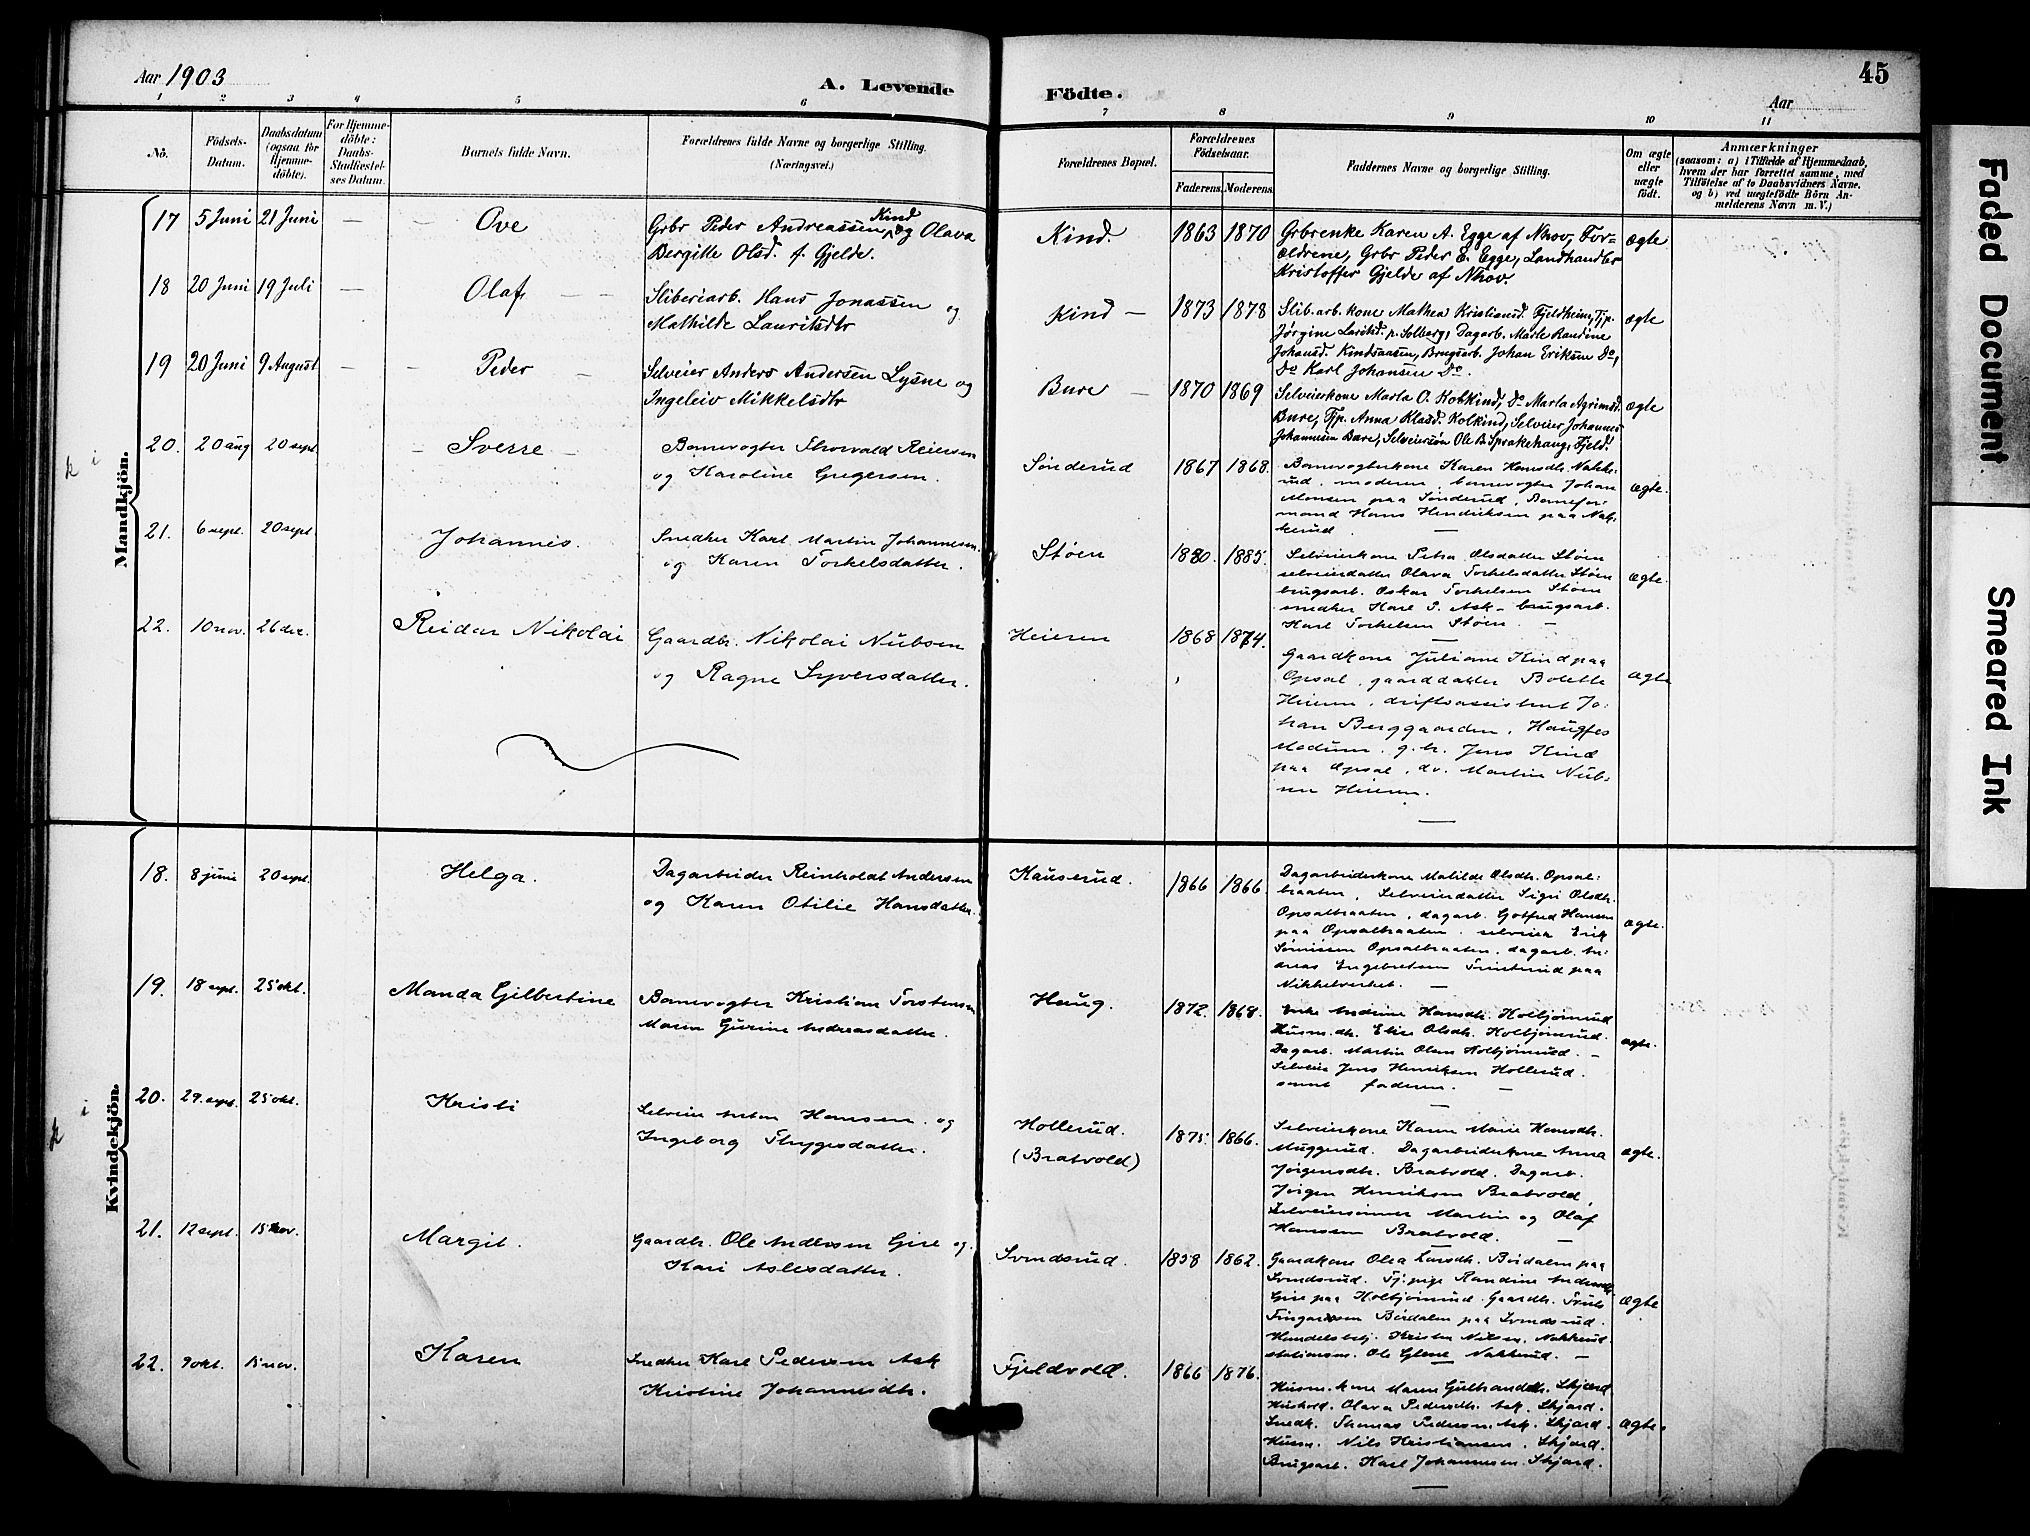 Aar 1903
A. Levende Födte.
Aar
45
1 2 3 4 5 6 7 8 9 10 11
No.
Födsels-Datum.
Daabsdatum (ogsaa for Hjemme-döbte).
For Hjemme-döbte: Daabs-Stadfæstel-ses Datum.
Barnets fulde Navn.
Forældrenes fulde Navne og borgerlige Stilling. (Næringsvei.)
Forældrenes Bopæl.
Forældrenes Födselsaar.
Faderens. Moderens.
Faddernes Navne og borgerlige Stilling.
Om ægte eller uægte födt.
Anmærkninger
(saasom: a) i Tilfælde af Hjemmedaab,
hvem der har forrettet samme, med
Tilföielse af to Daabsvidners Navne,
og b) ved uegtefödte Börn An-
melderens Navn m. V.)
Mandkjön.
17 5 Juni 21 Juni — — Ove
Grbr Peder Andreassen Kind og Olava
Bergitte Olsd. f. Gjelde.
Kind. 1863 1870
Grbrenke Karen A. Egge af Nhov, For=
ældrene, Grbr Peder E. Egge, Landhandler
Kristoffer Gjelde af Nhov.
ægte
18 20 Juni 19 Juli — Olaf — —
Sliberiarb. Hans Jonassen og
Mathilde Lauritsdtr
Kind — 1873 1878
Slib.arb.kone Mathea Kristiansd. Fjeldheim, Tjp.
Jørgine Laritsd. p. Solberg, Dagarb. Marte Randine
Johansd. Kindsaasen, Brugsarb. Johan Eriksen Do,
Do Karl Johansen Do.
ægte
19 20 Juni 9 August — — Peder —
Selveier Anders Andersen Lysne og
Ingeleiv Mikkelsdtr
Bure — 1870 1869
Selveierkone Marta O. Kolkind, Do Marta Agrimsd.
Bure, Tjp. Anna Klasd. Kolkind, Selveier Johannes
Johannesen Bure, Selveiersøn Ole B. Sprakehaug, Fjeld.
ægte
20. 20 aug 20 sept. — Sverre —
Banevogter Thorvald Reiersen
og Karoline Gregersen.
Sønderud 1867 1868.
Banevogterkone Karen Hansdtr. Nakke-
rud, moderen, banevogter Johan
Monsen paa Sønderud, Banefor-
mand Hans Hendriksen paa Nak-
kerud. —
ægte.
21. 6 sept. 20 sept. Johannes.
Snedker Karl Martin Johannesen.
og Karen Torkelsdatter.
Støen 1880. 1885.
Selveierkone Petra Olsdatter Støen
selveierdatter Olava Torkelsdatter Støen
brugsarb. Oskar Torkelsen Støen
snedker Karl P. Ask - brugsarb.
Karl Torkelsen Støen. —
ægte.
22. 10 nov. 26 dec. Reidar Nikolai
Gaardbr. Nikolai Nubsen
og Ragne Syversdatter.
Heieren 1868 1874.
Gaardkone Juliane Kind paa
Opsal, gaarddatter Bolette
Heieren, driftsassistent Jo-
han Berggaarden, Haugfos
Modum. g.br. Jens Kind
paa Opsal, dr. Martin Nub-
sen Heieren.
ægte
Kvindekjön.
18. 8 juni 20 sept. Helga.
Dagarbeider Reinholdt Andersen
og Karen Otilie Hansdatter.
Kauserud. 1866 1866
Dagarbeiderkone Matilde Olsdtr. Opsal-
braaten, Selveierdatter Sigri Olsdtr.
Opsalbraaten, dagarb. Gotfred Hansen
paa Opsalbraaten, selveier Erik
Opsalbraaten, dagarb. An-
dreas Engebretsen paa
Nikkelverket. —
ægte.
19. 18 sept. 25 okt. Manda Gilbertine
Banevogter Kristian Torstensen
Maren Gurine Andreasdatter.
Haug. 1872. 1868.
Enke Andrine Hansdtr. Holtjernrud
Husm.dtr. Elise Olsdtr. Holtjernrud.
Dagarb. Martin Olsen Holtjernrud. —
Selveier Jens Henriksen Hollerud.
samt faderen. —
ægte.
20. 29. sept. 25 okt. Kristi
Selveier Anton Hansen. og
Ingeborg Thrygesdatter.
Hollerud. (Bratvold) 1875. 1866.
Selveierkone Karen Marie Hansdtr.
Muggerud. Dagarbeiderkone Anna
Jörgensdtr. Bratvold. Dagarb.
Jörgen Henriksen Bratvold,
Selveiersönner Martin og Olaf
Hansen Bratvold. —
ægte.
21. 12 sept. 15 nov. Margit.
Gaardbr. Ole Andersen Gise og
Kari Aslesdatter.
Svendsrud. 1858 1862.
Gaardkone Olea Larsdtr. Bördalen paa
Svendsrud. Tj.pige Randine Andersdtr.
Gise paa Holtjernrud. Gaardbr. Truls
Fingarsen Bördalen paa Svendsrud.
Handelsbetj. Kristen Nilsen, Nakkerud.
stationsm. Ole Glesne Nakkerud. —
ægte
22. 9 okt. 15 nov. Karen
Snedker Karl Pedersen Ask
Kristine Johannesdtr.
Fjeldvold. 1866 1876.
Husm.kone Maren Gulbrandsdtr. Skjærd
Hushold. Olava Pedersdtr. Ask, Skjard.
Snedk. Thomas Pedersen Ask, Skjard.
Husm. Nils Kristiansen. Skjard.
Brugsarb. Karl Johannesen. Skjard.
ægte.
Faded Document
Smeared Ink